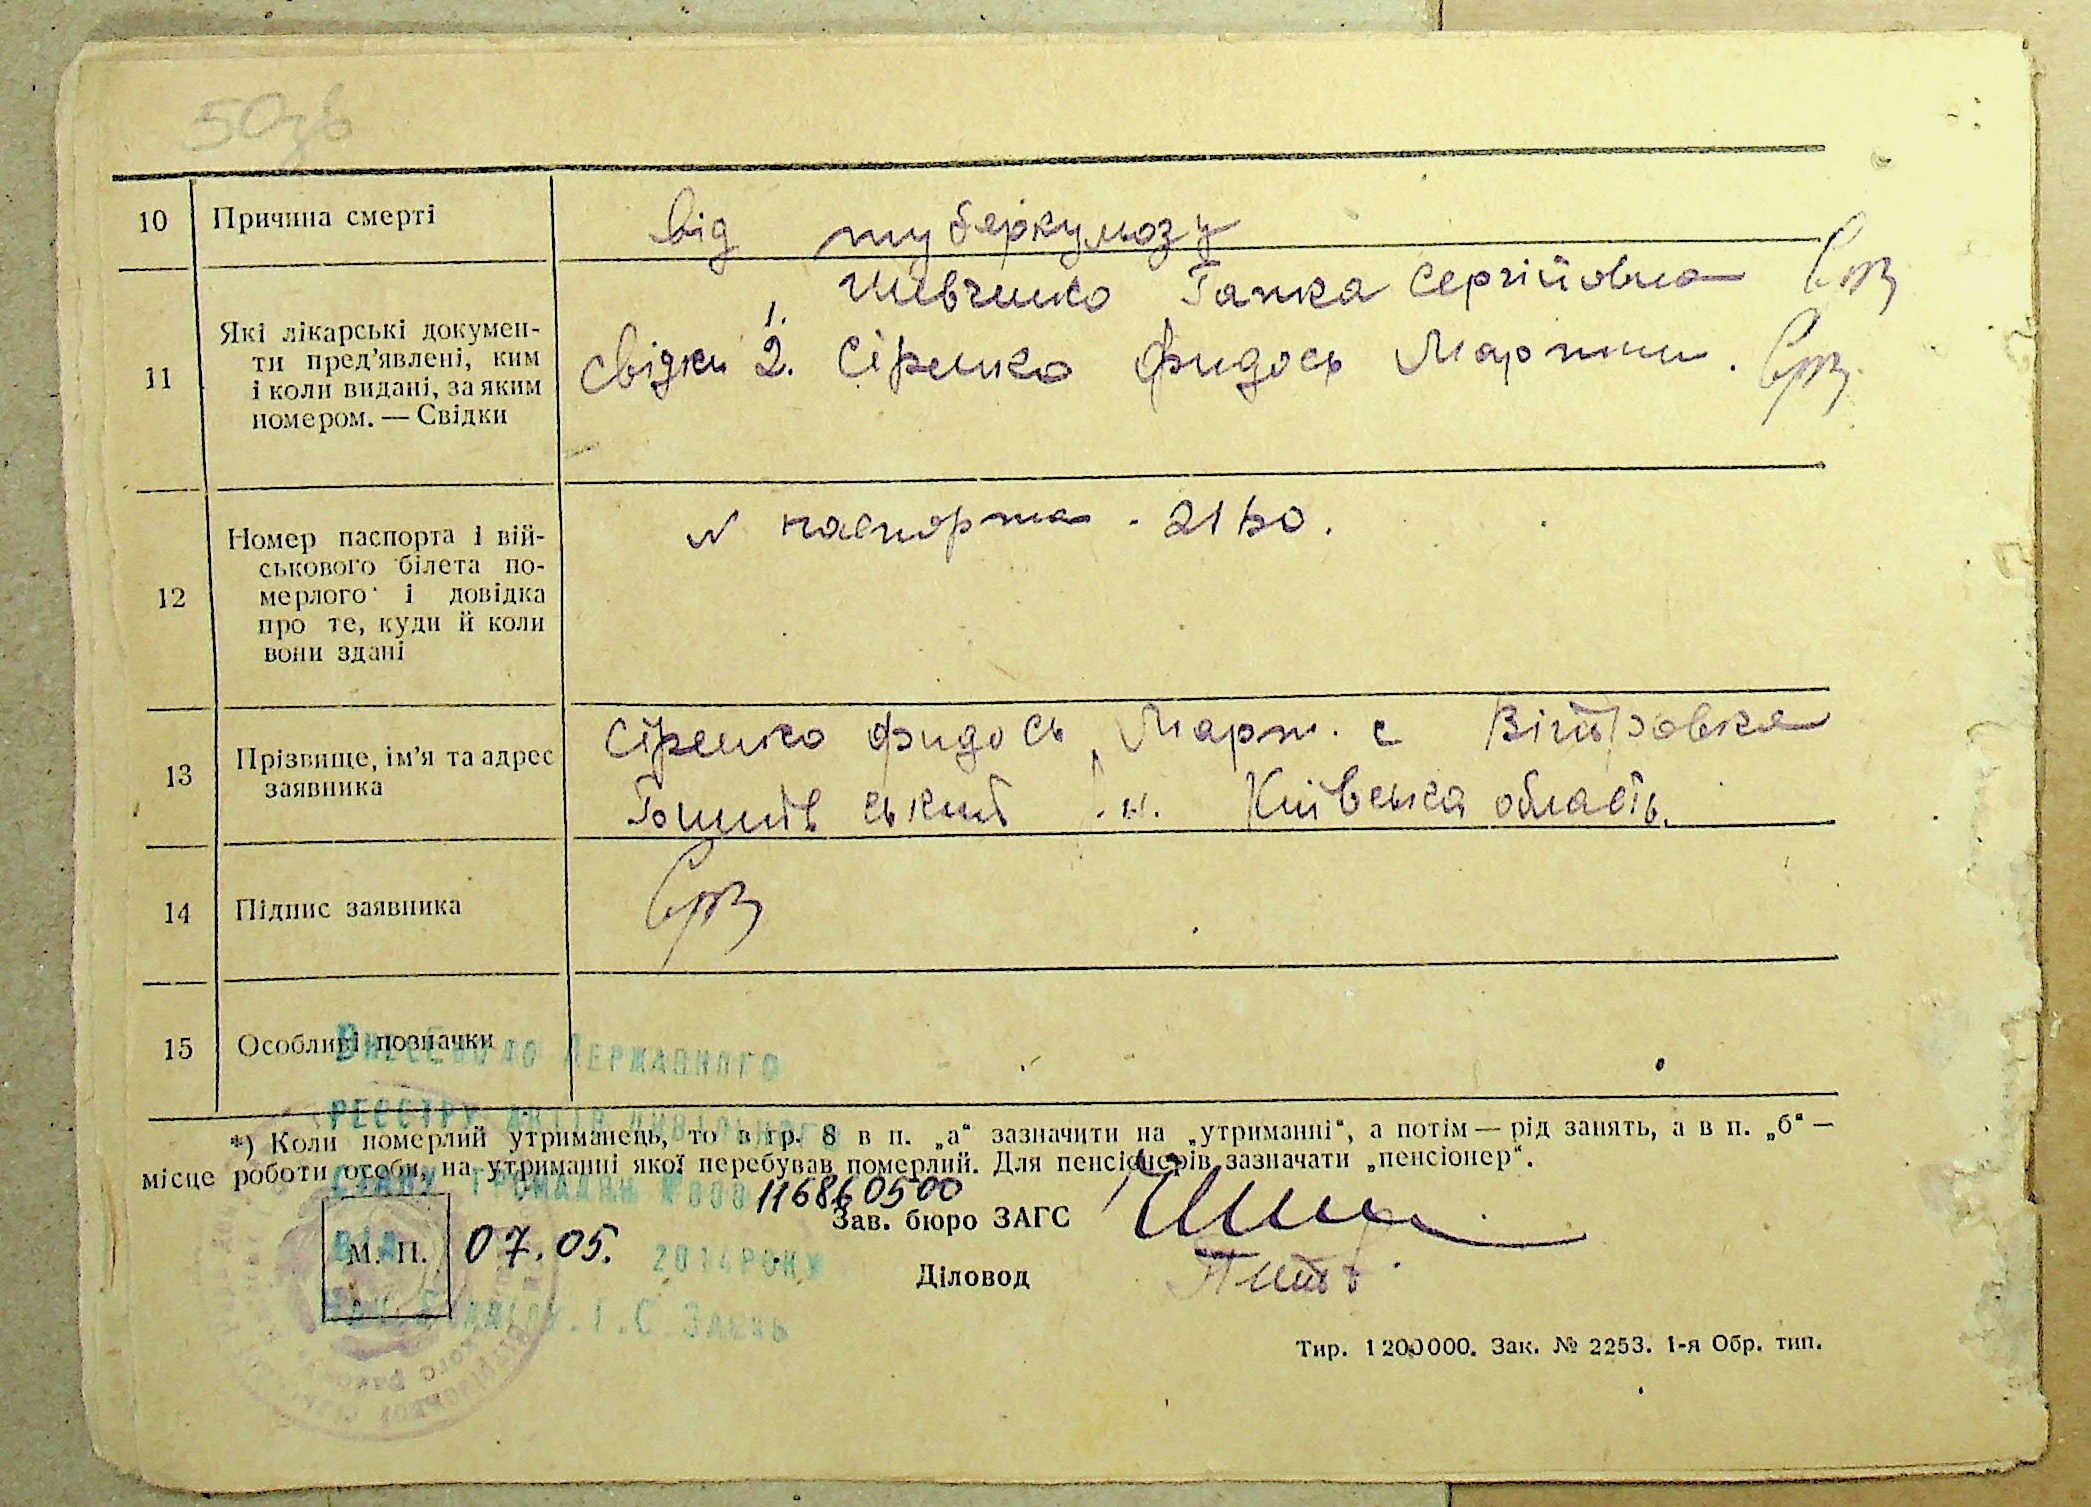 50зв
10 Причина смерті
від туберкульозу
11 Які лікарські докумен-
ти пред'явлені, ким
і коли видані, за яким
номером. — Свідки
1. Шевченко Гапка Сергійовна
свідки 2. Сіренко Фидось Мартин.
12 Номер паспорта і вій-
ськового білета по-
мерлого і довідка
про те, куди й коли
вони здані
N паспорта - 2150.
13 Прізвище, ім'я та адрес
заявника
Сіренко Фидось Март. с Вітровка
ський р.н. Київська область.
14 Підпис заявника
15 Особливі позначки
Внесено до Державного
реєстру актів цивільного
*) Коли померлий утриманець, то в гр. 8 в п. „а“ зазначити на „утриманні“, а потім — рід занять, а в п. „б“ —
місце роботи особи, на утриманні якої перебував померлий. Для пенсіонерів зазначати „пенсіонер“.
стану громадян №000 116860500
Зав. бюро ЗАГС
М. П. від 07.05. 2014 року
Діловод
Тир. 1 200000. Зак. № 2253. 1-я Обр. тип.